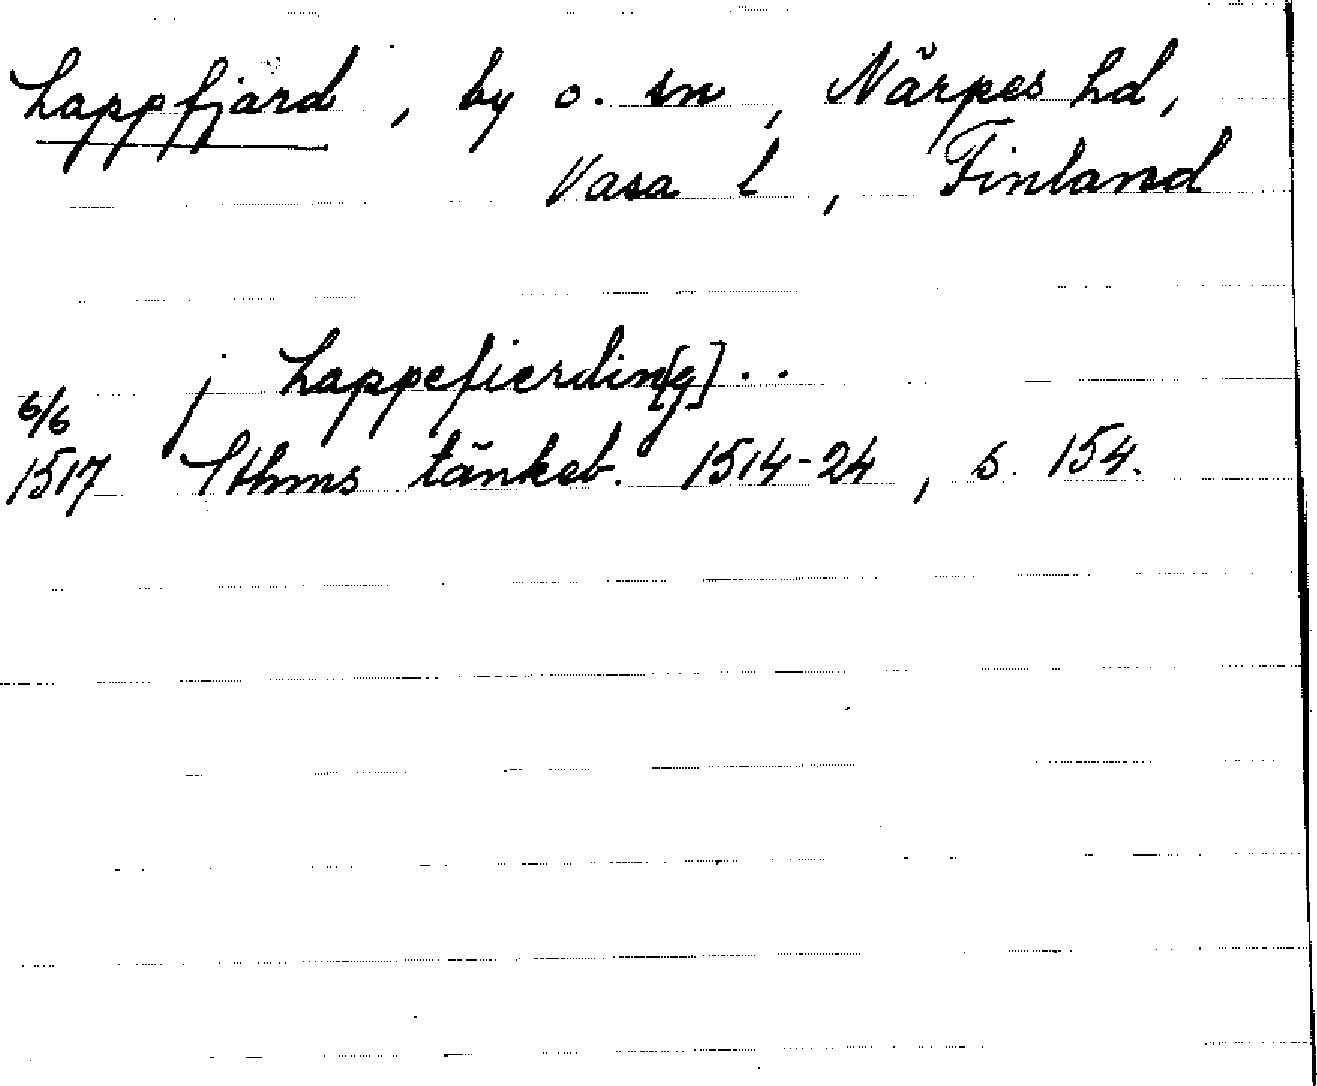 Lappfjärd, by o. sn, Närpes hd,
Vasa l, Finland
j Lappefierdin[g]..
6/6
1517 Sthms tänkeb. 1514-24, s. 154.